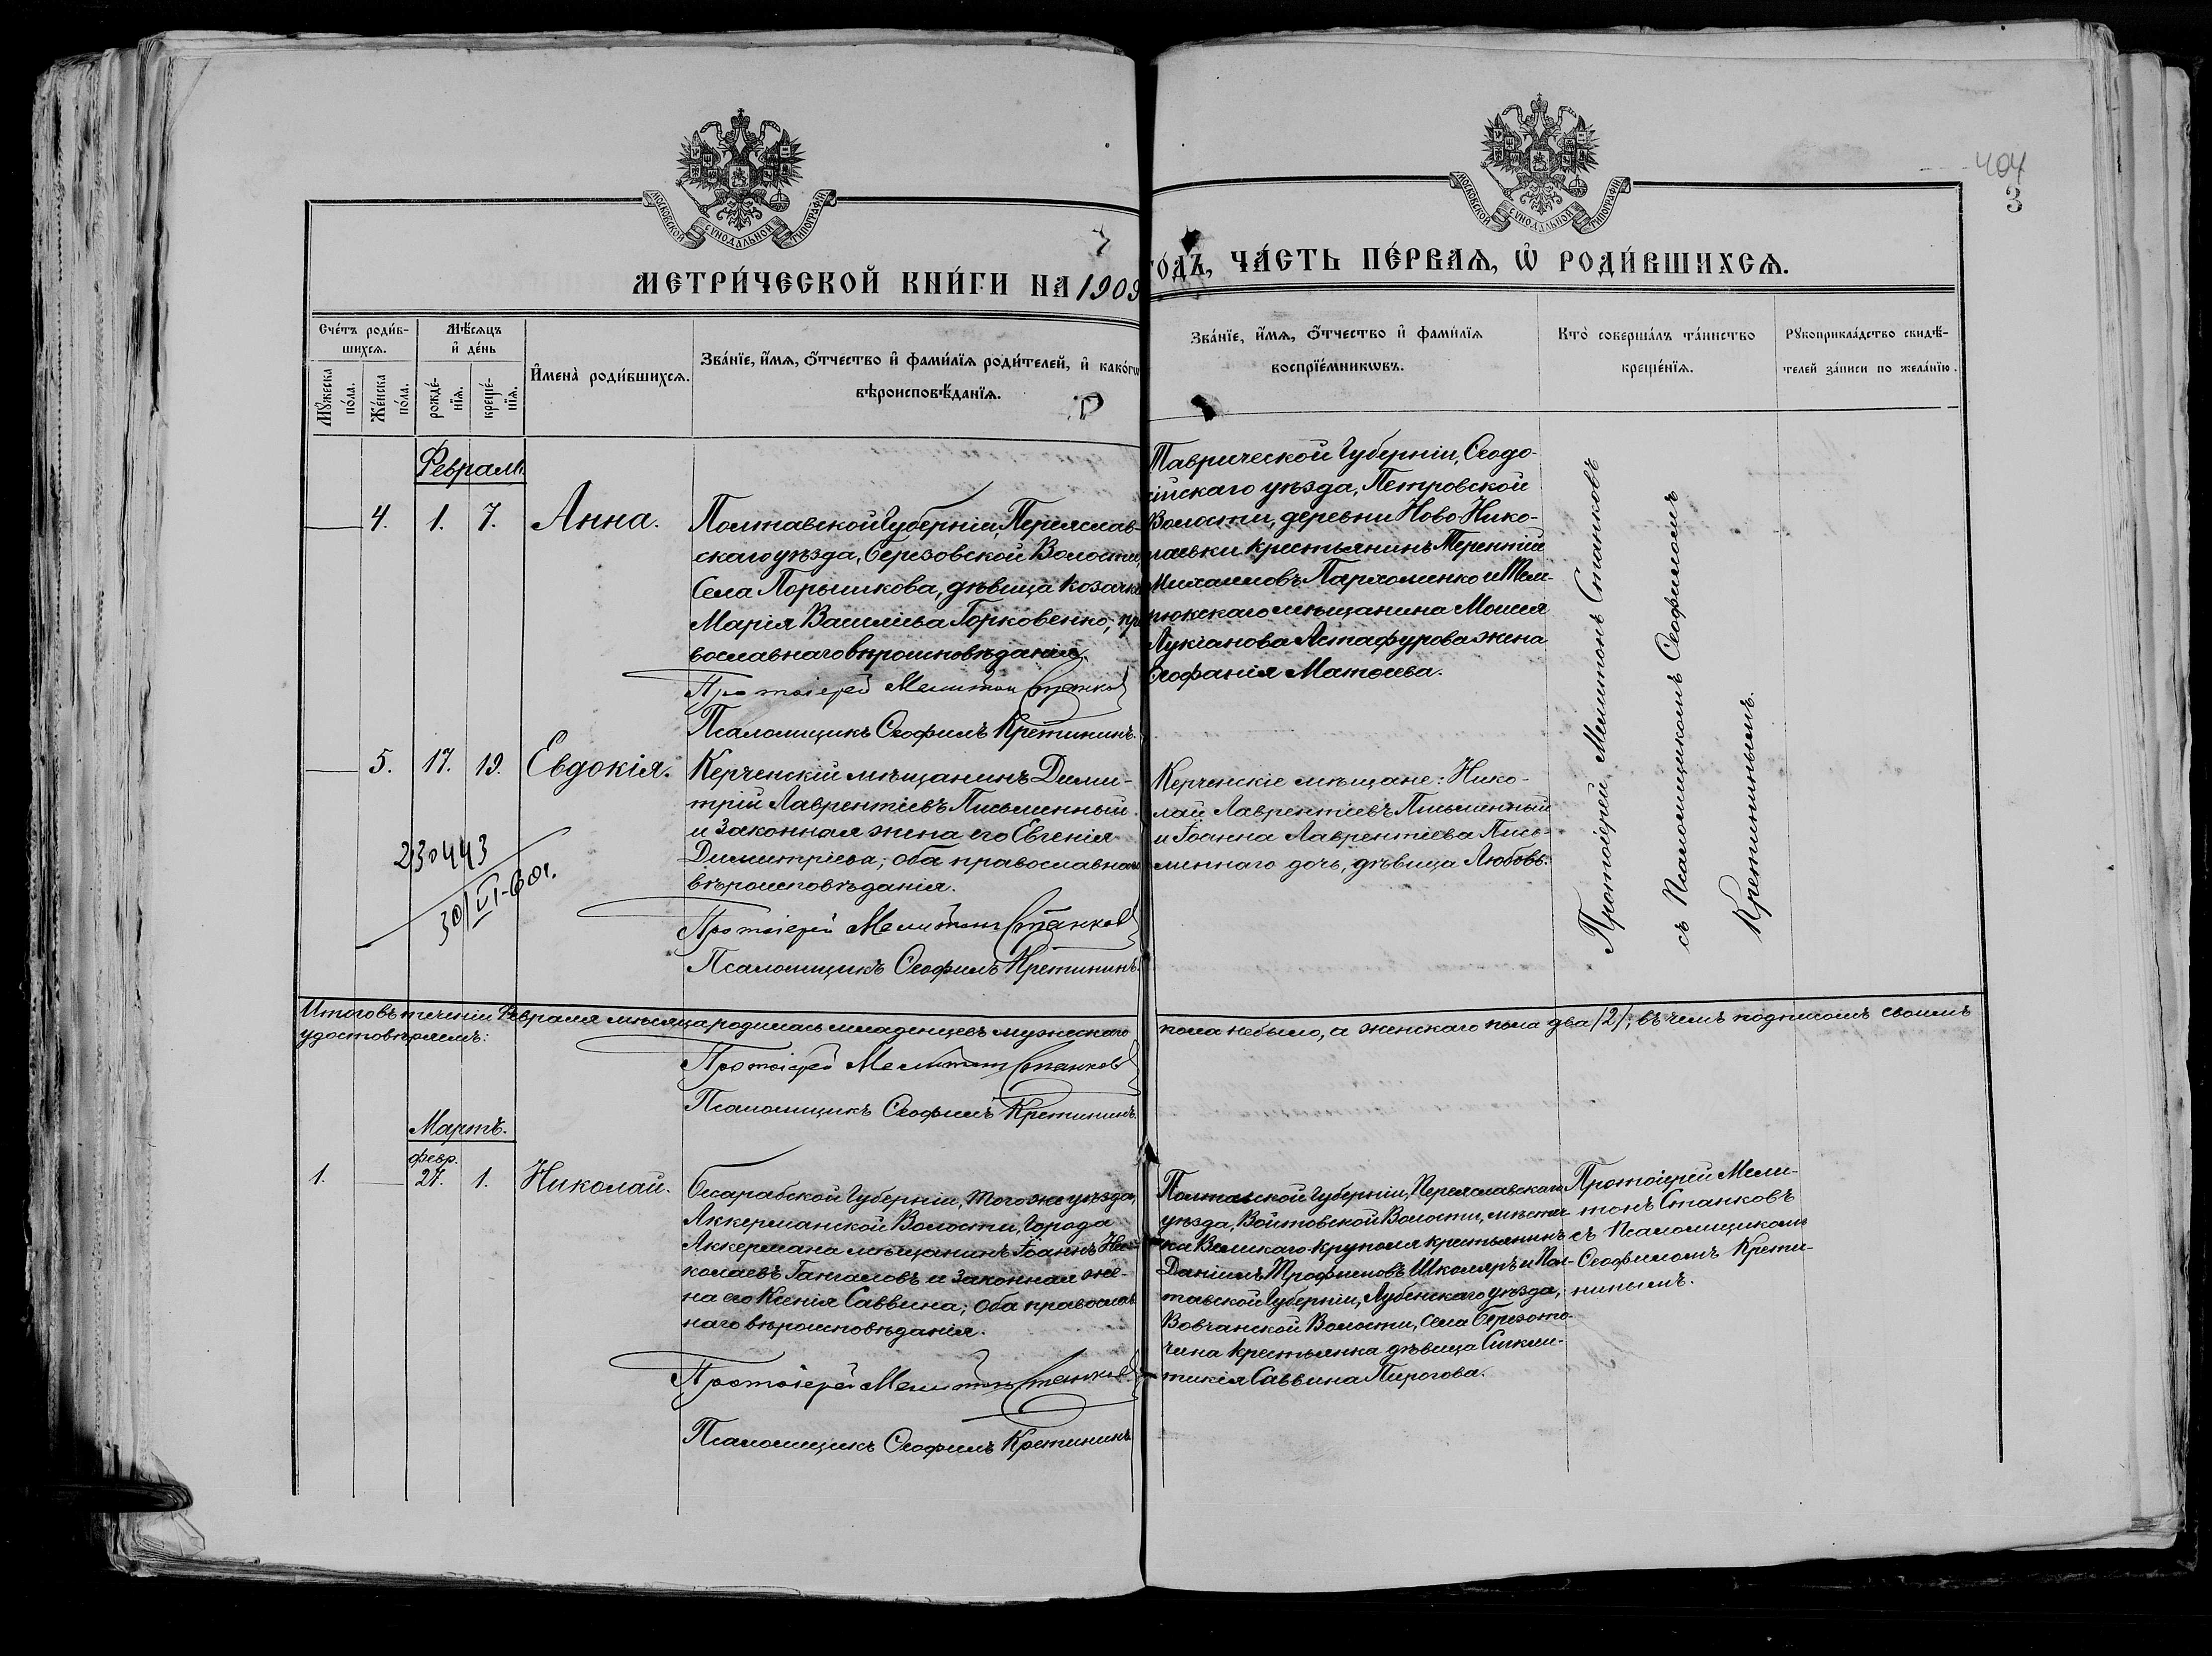 МОСКОВСКОЙ СУНОДАЛЬНОЙ ТИПОГРАФІИ
МОСКОВСКОЙ СУНОДАЛЬНОЙ ТИПОГРАФІИ
404
3
МЕТРИ́ЧЕСКОЙ КНИ́ГИ НА 1909
ГО́ДЪ, ЧА́СТЬ ПЕ́РВАЯ, Ѡ҆ РОДИ́ВШИХСЯ.
Сче́тъ роди́в-
шихся.
Мꙋ́жеска
по́ла.
Же́нска
по́ла.
Мѣ́сяцъ
и҆ де́нь
рожде́-
нїя.
креще́-
нїя.
И҆мена̀ роди́вшихся.
Зва́нїе, и҆́мя, ѻ҆́тчество и҆ фами́лїя роди́телей, и҆ како́гѡ
вѣроисповѣ́данїя.
Зва́нїе, и҆́мя, ѻ҆́тчество и҆ фами́лїя
воспрїе́мникѡвъ.
Кто̀ соверша́лъ та́инство
креще́нїя.
Рꙋкоприкла́дство свидѣ́-
телей за́писи по жела́нїю.
Февраль
4. 1. 7. Анна.
Полтавской Губерніи, Переяслав-
скаго уѣзда, Березовской Волости,
Села Порышкова, дѣвица козачка
Марія Васильева Горковенко; пра
вославнаго вѣроисповѣданія.
Протоіерей Мелитон Станков
Псаломщикъ Ѳеофилъ Кретининъ.
Таврической Губерніи, Ѳеодо-
сійскаго уѣзда, Петровской
Волости, деревни Ново-Нико-
лаевки крестьянинъ Терентій
Михаиловъ Пархоменко и Тем-
рюкскаго мѣщанина Моисея
Лукіанова Астафурова жена
Ѳеофанія Матѳеева.
Протоіерей Мелитонъ Станковъ
съ Псаломщикомъ Ѳеофиломъ
Кретининымъ.
5. 17. 19. Евдокія.
230443
30/VI-60г.
Керченскій мѣщанинъ Дими-
трій Лаврентіевъ Письменный
и законная жена его Евгенія
Димитріева; оба православнаго
вѣроисповѣданія.
Протоіерей Мелитон Станков
Псаломщикъ Ѳеофилъ Кретининъ.
Керченскіе мѣщане: Нико-
лай Лаврентіевъ Письменный
и Іоанна Лаврентіева Пись-
меннаго дочь, дѣвица Любовь.
Итого въ теченіи Февраля мѣсяца родилась младенцевъ мужескаго пола небыло, а женскаго пола два /2/; въ чемъ подписомъ своимъ
удостовѣряемъ:
Протоіерей Мелитон Станков
Псаломщикъ Ѳеофилъ Кретининъ.
Мартъ.
февр.
1. 27. 1. Николай.
Бесарабской Губерніи, того же уѣзда,
Аккерманской Волости, Города
Аккермана мѣщанинъ Іоаннъ Ни-
колаевъ и законная же-
на его Ксенія Саввина; оба православ
наго вѣроисповѣданія.
Протоіерей Мелитонъ Станков
Псаломщикъ Ѳеофилъ Кретининъ
Полтавской Губерніи, Переяславскаго
уѣзда, Войтовской Волости, мѣстеч
ка Великаго-Круполя крестьянинъ
Даніилъ Трофимовъ Школяръ и Пол-
тавской Губерніи, Лубенскаго уѣзда,
Вовчанской Волости, села Березото-
чина крестьянка дѣвица Синкли-
тикія Саввина Пирогова.
Протоіерей Мели-
тонъ Станковъ
съ Псаломщикомъ
Ѳеофиломъ Крети-
нинымъ.